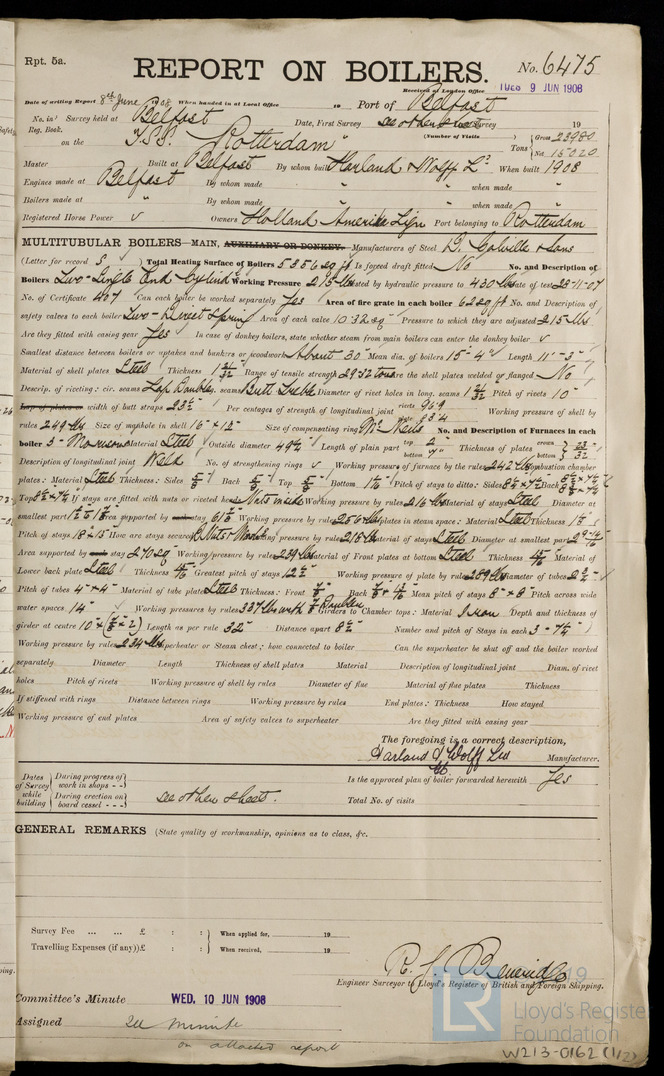 Rpt. 5a.
REPORT ON BOILERS.
No. 6475
Received at London Office TUES 9 JUN 1908
Date of writing Report 8th June 1908 When handed in at Local Office 19 Port of Belfast
No. in Reg. Book. Survey held at Belfast Date, First Survey see other sheet Survey 19
(Number of Visits )
on the T.S.S. "Rotterdam" Tons { Gross 23980 Net 15020
Master Built at Belfast By whom built Harland & Wolff Ld When built 1908
Engines made at Belfast By whom made " when made "
Boilers made at " By whom made " when made "
Registered Horse Power Owners Holland Amerika Lijn Port belonging to Rotterdam
MULTITUBULAR BOILERS—MAIN, AUXILIARY OR DONKEY.—Manufacturers of Steel D. Colville & Sons
(Letter for record S) Total Heating Surface of Boilers 5356 sq ft Is forced draft fitted No No. and Description of
Boilers Two - Single End Cylindl Working Pressure 215 lbs Tested by hydraulic pressure to 430 lbs Date of test 23-11-07
No. of Certificate 407 Can each boiler be worked separately Yes Area of fire grate in each boiler 62 sq ft No. and Description of
safety valves to each boiler Two - Direct Spring Area of each valve 10.32 sq" Pressure to which they are adjusted 215 lbs
Are they fitted with easing gear Yes In case of donkey boilers, state whether steam from main boilers can enter the donkey boiler
Smallest distance between boilers or uptakes and bunkers or woodwork About 30" Mean dia. of boilers 15'-4" Length 11'-3"
Material of shell plates Steel Thickness 1 21/32 Range of tensile strength 29-32 tons Are the shell plates welded or flanged No
Descrip. of riveting: cir. seams Lap Double long. seams Butt Treble Diameter of rivet holes in long. seams 1 21/32 Pitch of rivets 10"
Lap of plates or width of butt straps 23 1/2" Per centages of strength of longitudinal joint rivets 96.9 plate 83.4 Working pressure of shell by
rules 249 lbs Size of manhole in shell 16" x 12" Size of compensating ring McNeils No. and Description of Furnaces in each
boiler 3 - Morisons Material Steel Outside diameter 49 1/2" Length of plain part top 2" bottom 7" Thickness of plates crown bottom } 23/32
Description of longitudinal joint Weld No. of strengthening rings Working pressure of furnace by the rules 242 lbs Combustion chamber
plates: Material Steel Thickness: Sides 5/8" Back 5/8" Top 5/8" Bottom Pitch of stays to ditto: Sides Back
Top 8 1/2 x 7 1/2 If stays are fitted with nuts or riveted heads Nuts inside Working pressure by rules 216 lbs Material of stays Steel Diameter at
smallest part Area supported by each stay Working pressure by rules 256 lbs End plates in steam space: Material Steel Thickness
Pitch of stays 18 x 15 How are stays secured Nuts & Washers Working pressure by rules 218 lbs Material of stays Steel Diameter at smallest part
Area supported by each stay 270 sq Working pressure by rules 239 lbs Material of Front plates at bottom Steel Thickness 15/16 Material of
Lower back plate Steel Thickness 15/16 Greatest pitch of stays 12 1/2" Working pressure of plate by rules 289 lbs Diameter of tubes 2 3/4"
Pitch of tubes 4" x 4" Material of tube plates Steel Thickness: Front Back Mean pitch of stays 8" x 8" Pitch across wide
water spaces 14" Working pressures by rules 337 lbs with Doublers Girders to Chamber tops: Material Iron Depth and thickness of
girder at centre 10 x (7/8 x 2) Length as per rule 32" Distance apart 8 1/2" Number and pitch of Stays in each 3 - 7 1/2"
Working pressure by rules 234 lbs Superheater or Steam chest; how connected to boiler Can the superheater be shut off and the boiler worked
separately Diameter Length Thickness of shell plates Material Description of longitudinal joint Diam. of rivet
holes Pitch of rivets Working pressure of shell by rules Diameter of flue Material of flue plates Thickness
If stiffened with rings Distance between rings Working pressure by rules End plates: Thickness How stayed
Working pressure of end plates Area of safety valves to superheater Are they fitted with easing gear
The foregoing is a correct description,
Harland & Wolff Ld Manufacturer.
Dates of Survey while building { During progress of work in shops - - } { During erection on board vessel - - - } see other sheets.
Is the approved plan of boiler forwarded herewith Yes
Total No. of visits
GENERAL REMARKS (State quality of workmanship, opinions as to class, &c.
Survey Fee ... ... £ : : When applied for, 19
Travelling Expenses (if any) £ : : When received, 19
R. J. Beveridge
Engineer Surveyor to Lloyd's Register of British and Foreign Shipping.
Committee's Minute WED. 10 JUN 1908
Assigned see minute
on attached report
LR
Lloyd's Register
Foundation
W213-0162 (1/2)